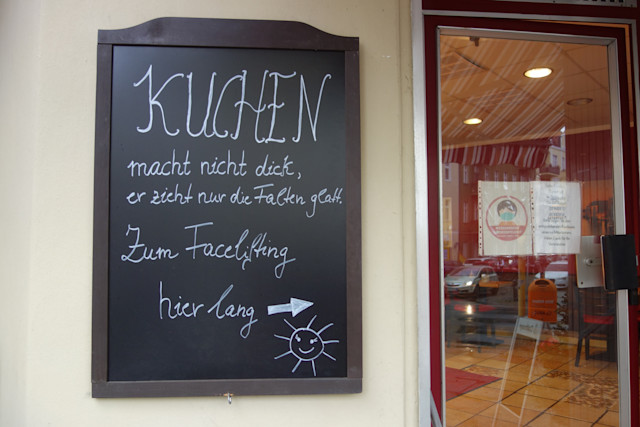 KUCHEN
macht nicht dick,
er zieht nur die Falten glatt.
Zum Facelifting
hier lang